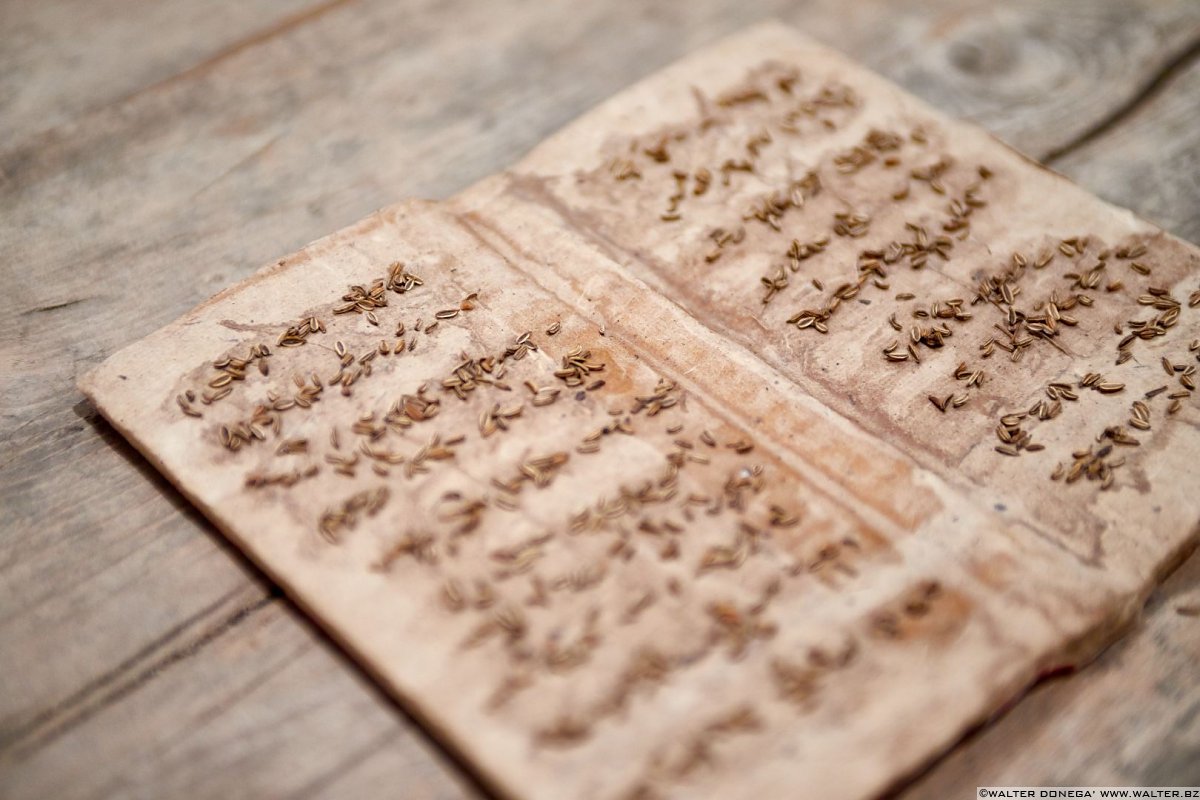 ©WALTER DONEGA' WWW.WALTER.BZ